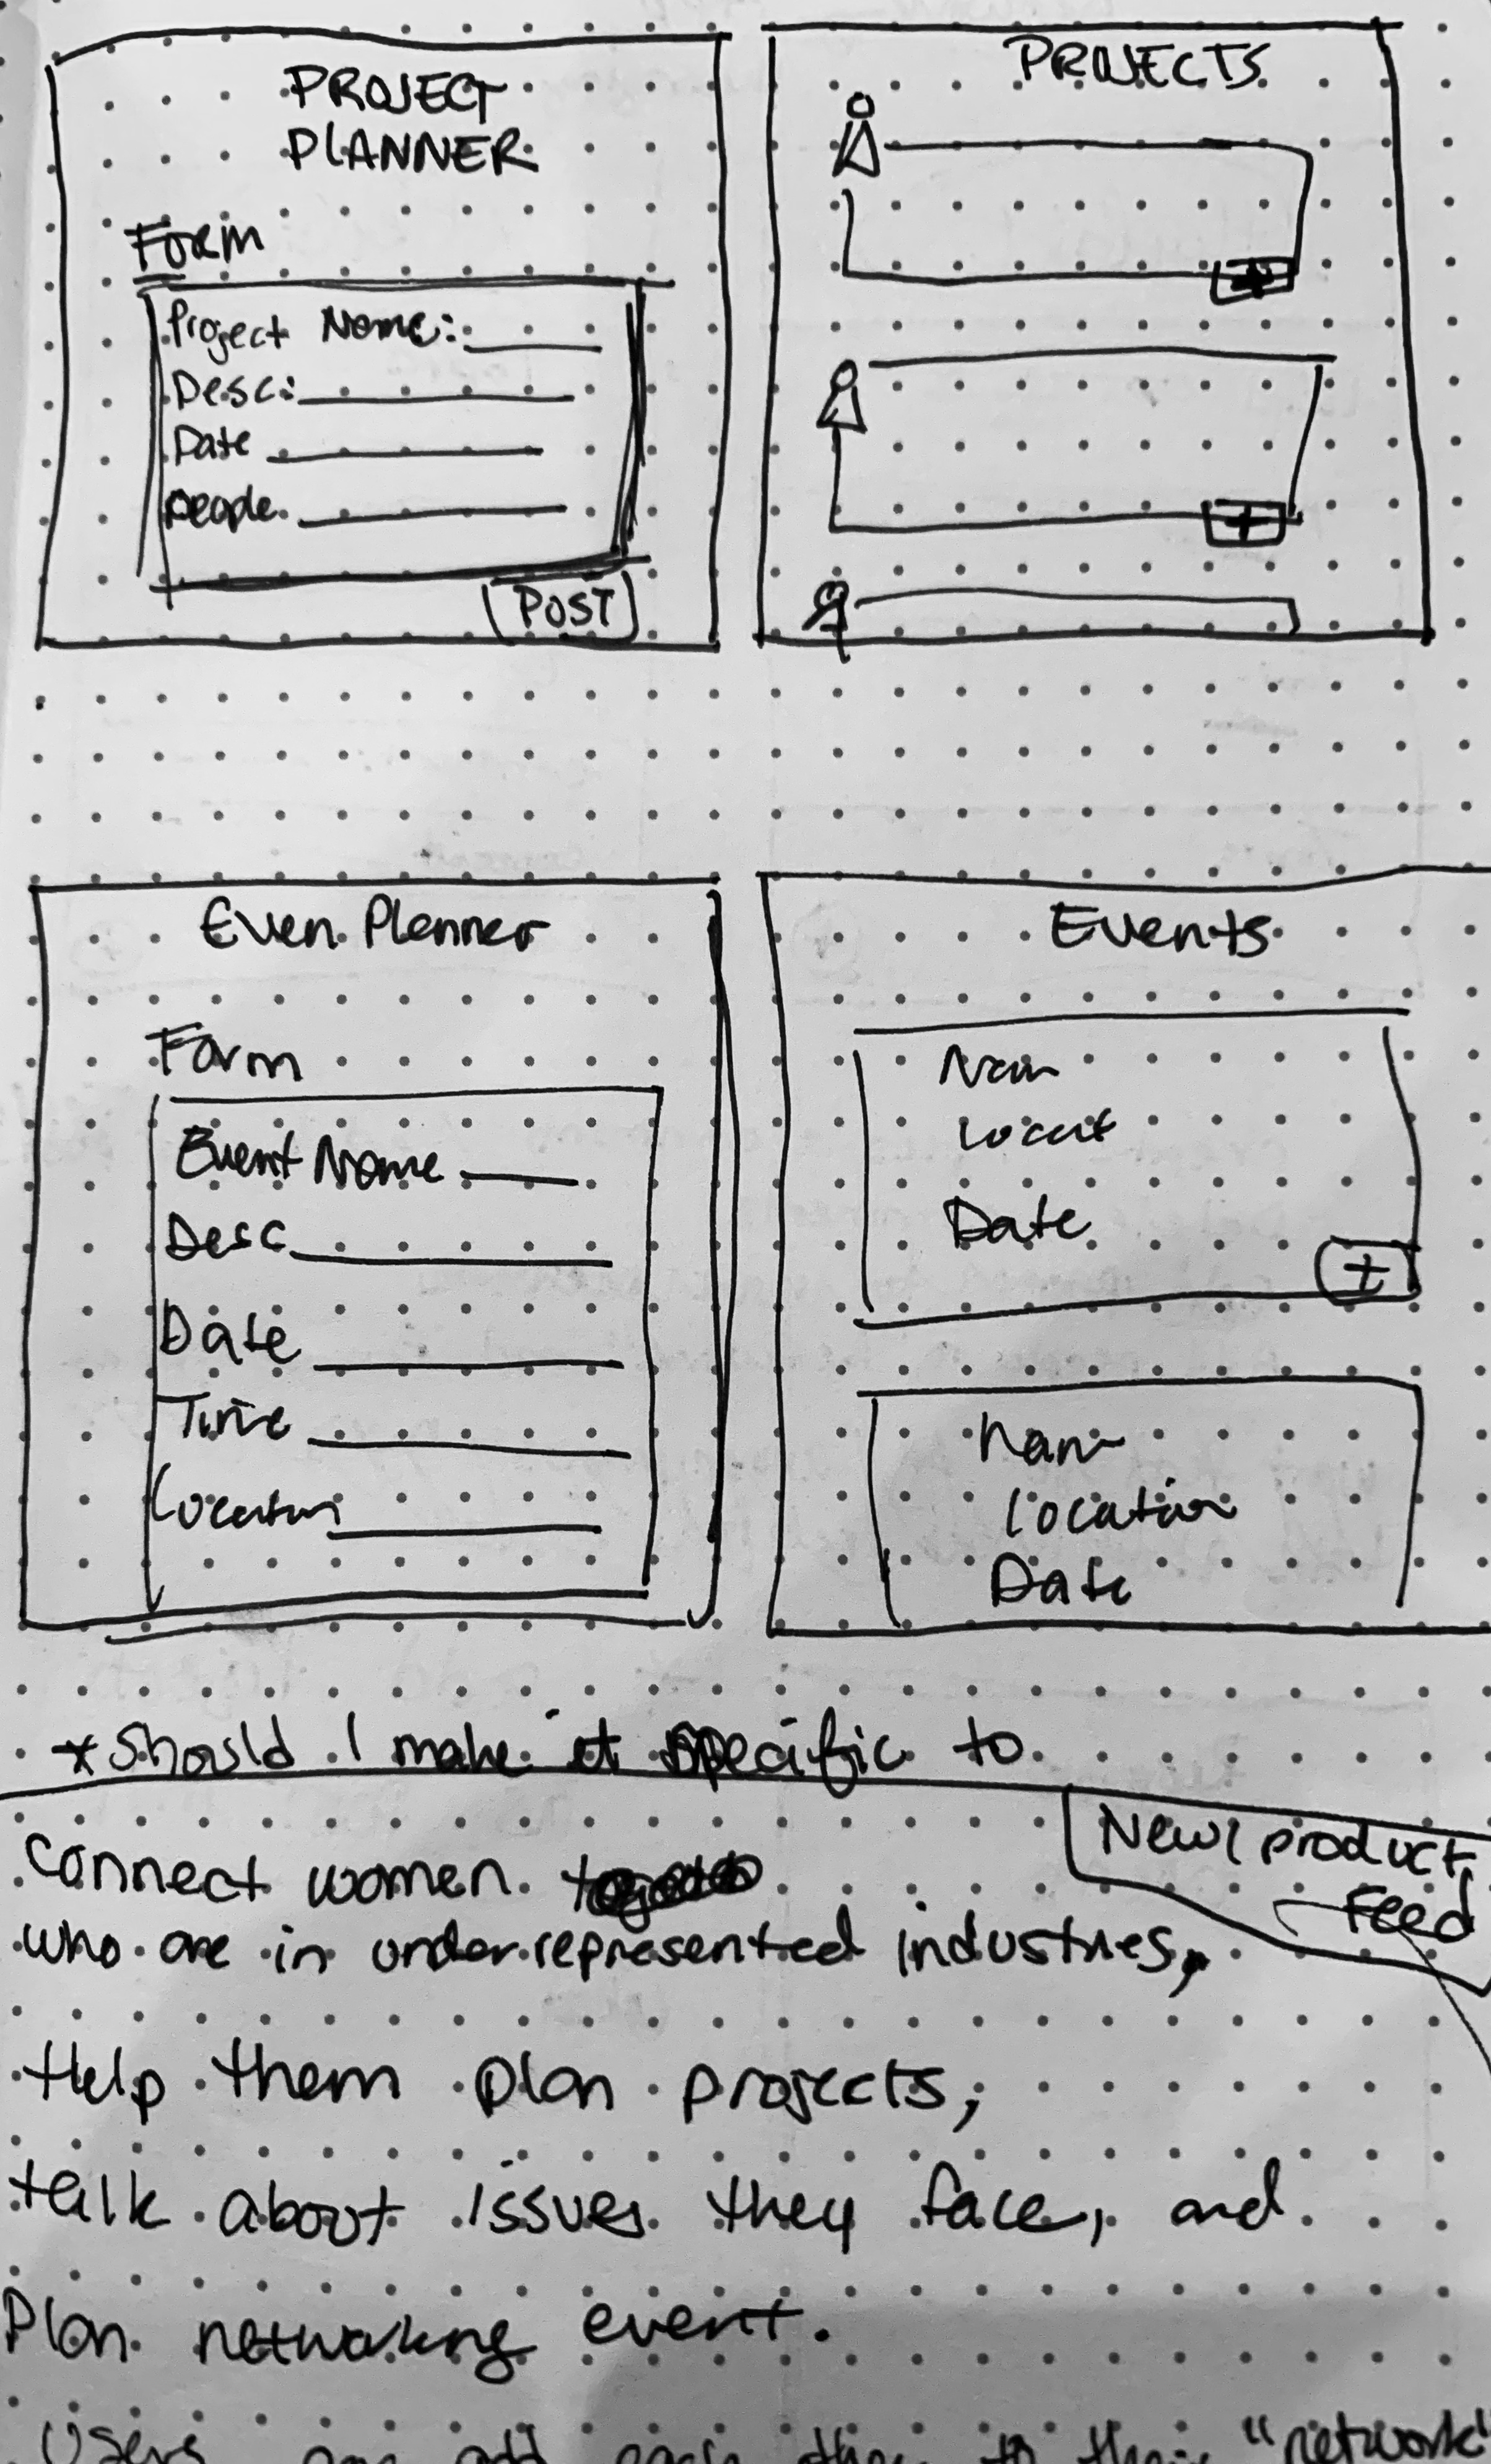 PROJECT
PLANNER
Form
Project Name:
Desc:
Date
People
POST
PROJECTS
+
+
Even Planner
Form
Event Name
Desc
Date
Time
Location
Events
Nam
Locat
Date
+
Nam
Location
Date
*Should I make it specific to
New product
Feed
Connect women
who are in underrepresented industries,
Help them plan projects,
talk about issues they face, and
Plan networking event.
Users can add each other to their "network"